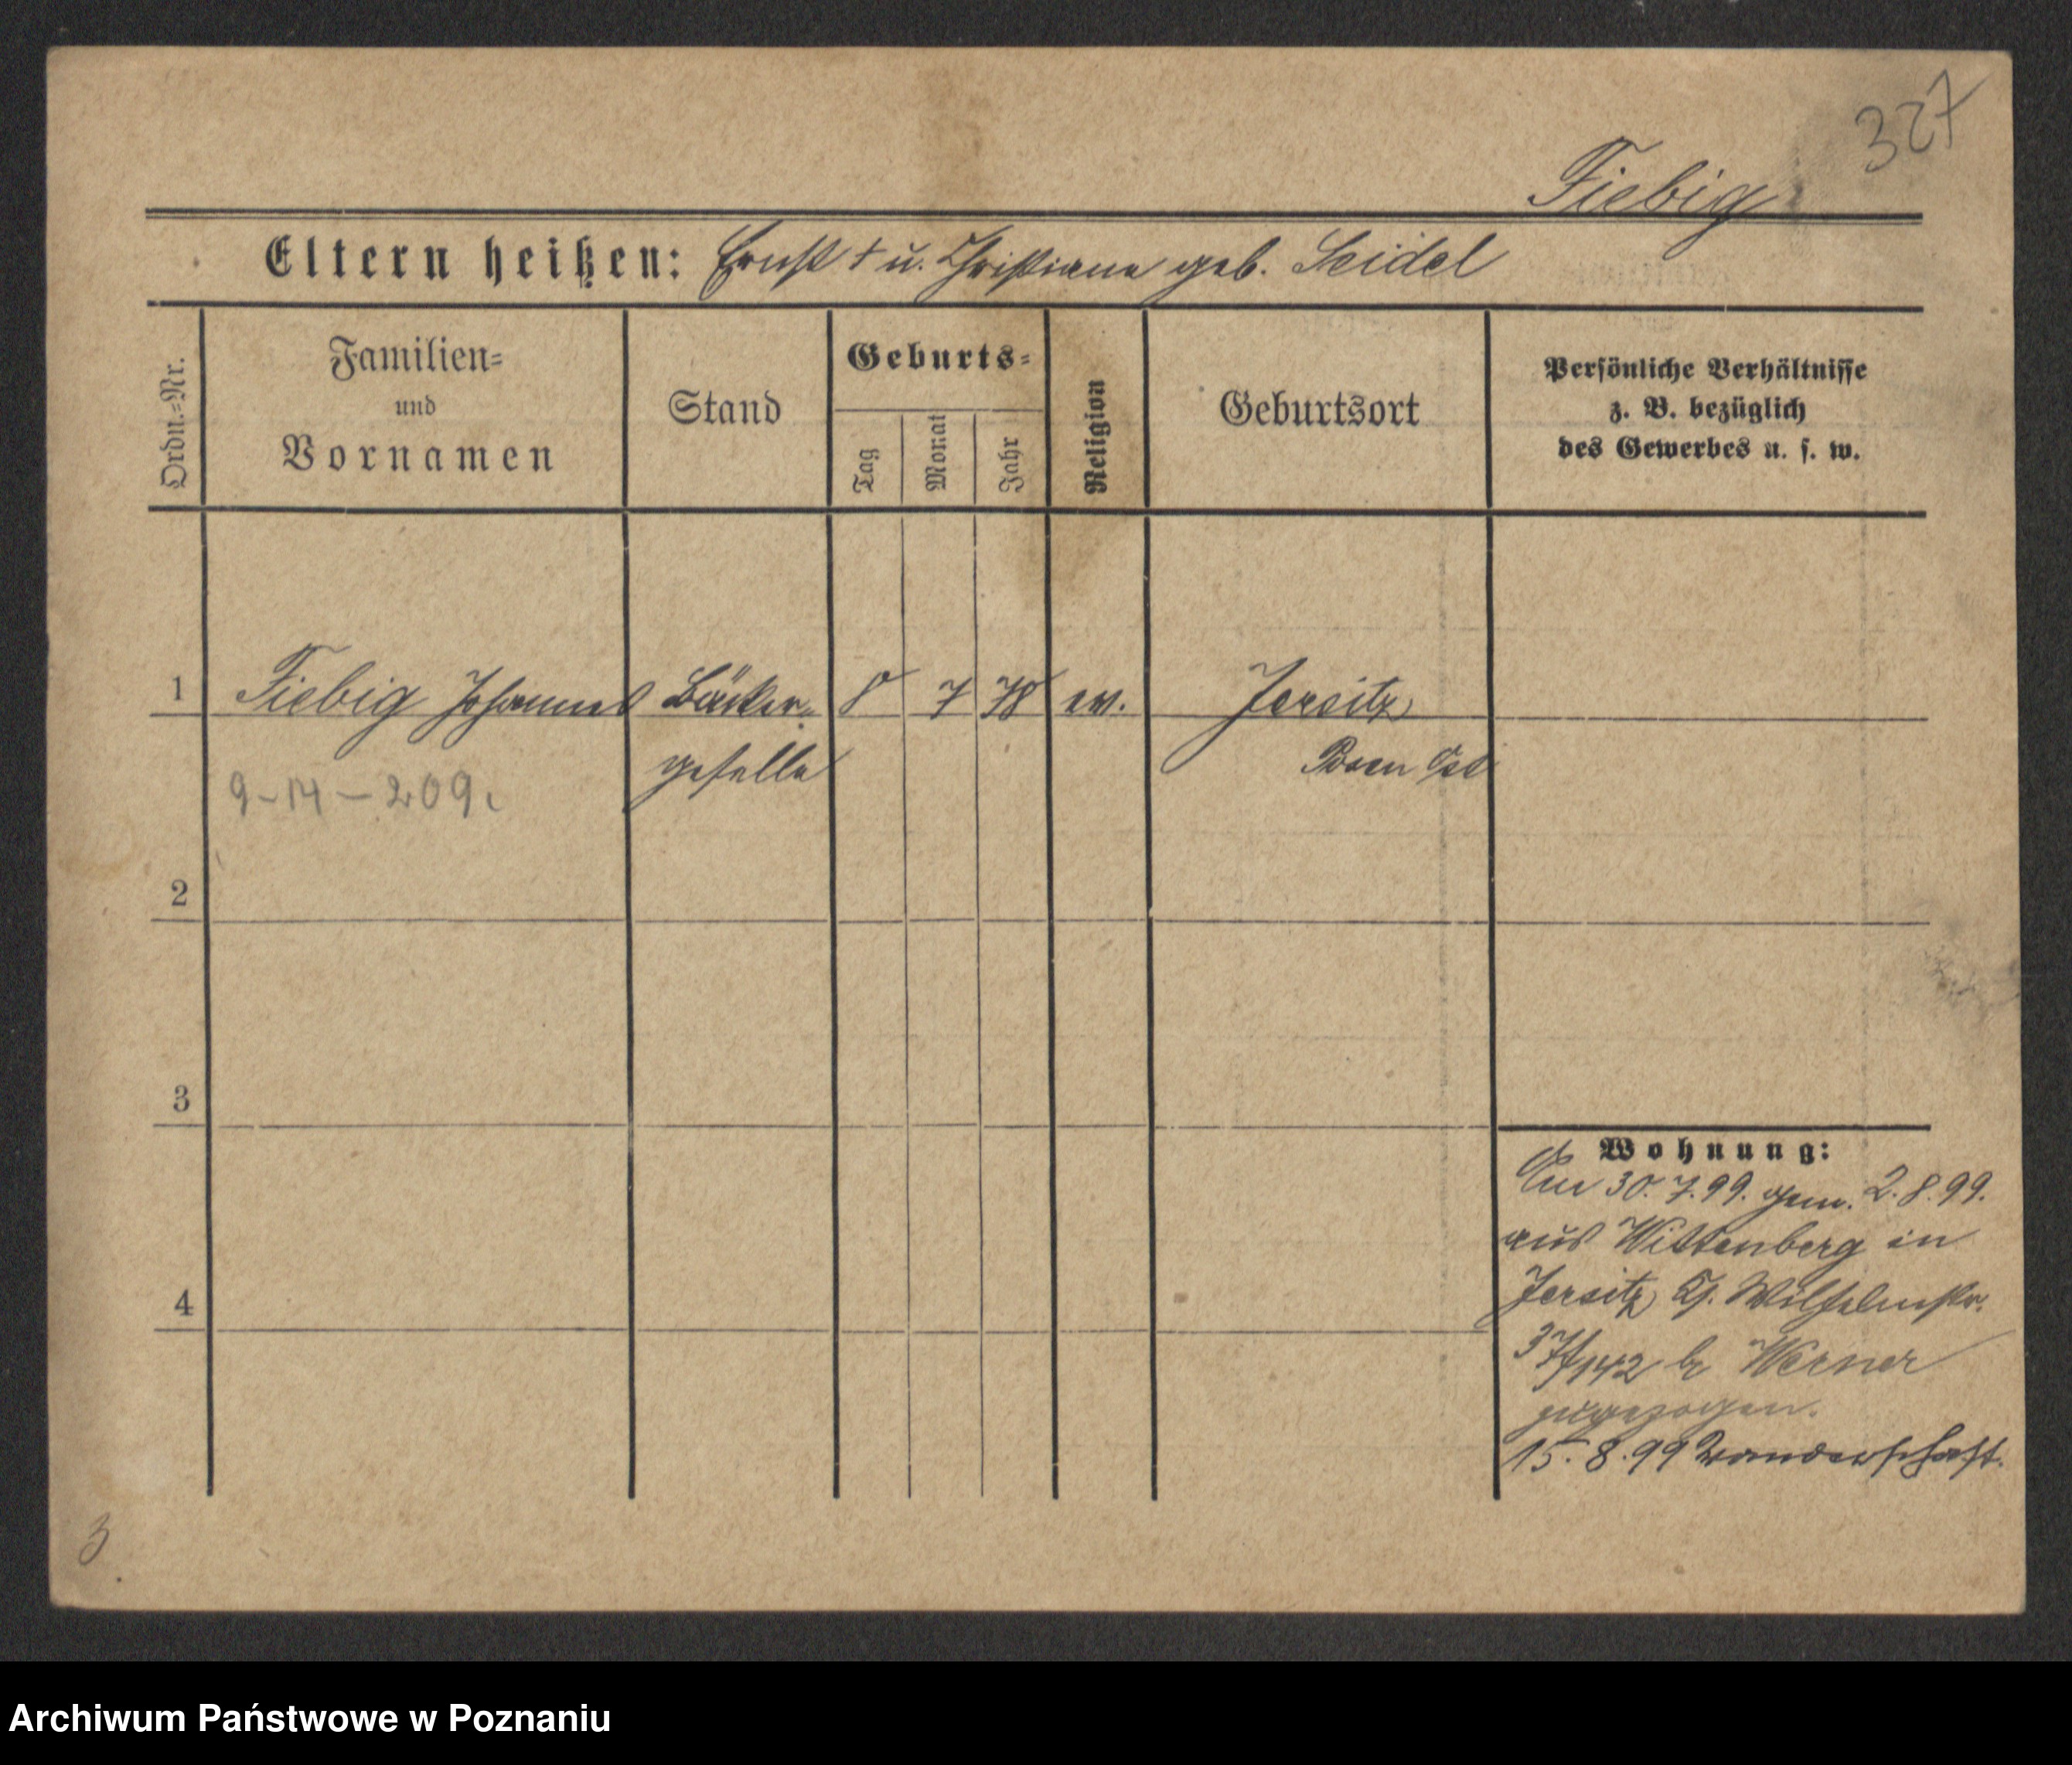 327
Fiebig
Eltern heißen: Ernst † u. Christiane geb. Seidel
Ordn.=Nr.
Familien=
und
Vornamen
Stand
Geburts=
Tag
Monat
Jahr
Religion
Geburtsort
Persönliche Verhältnisse
z. B. bezüglich
des Gewerbes u. s. w.
1 Fiebig Johannes Bäcker= 8 7 78 ev. Jersitz
geselle Posen Ost
9-14-209.
2
3
4
Wohnung:
Am 30.7.99. gem. 2.8.99.
aus Wittenberg in
Jersitz Gr. Wilhelmstr.
37/142 br Werner
zugezogen.
15.8.99 Wanderschaft.
3
Archiwum Państwowe w Poznaniu